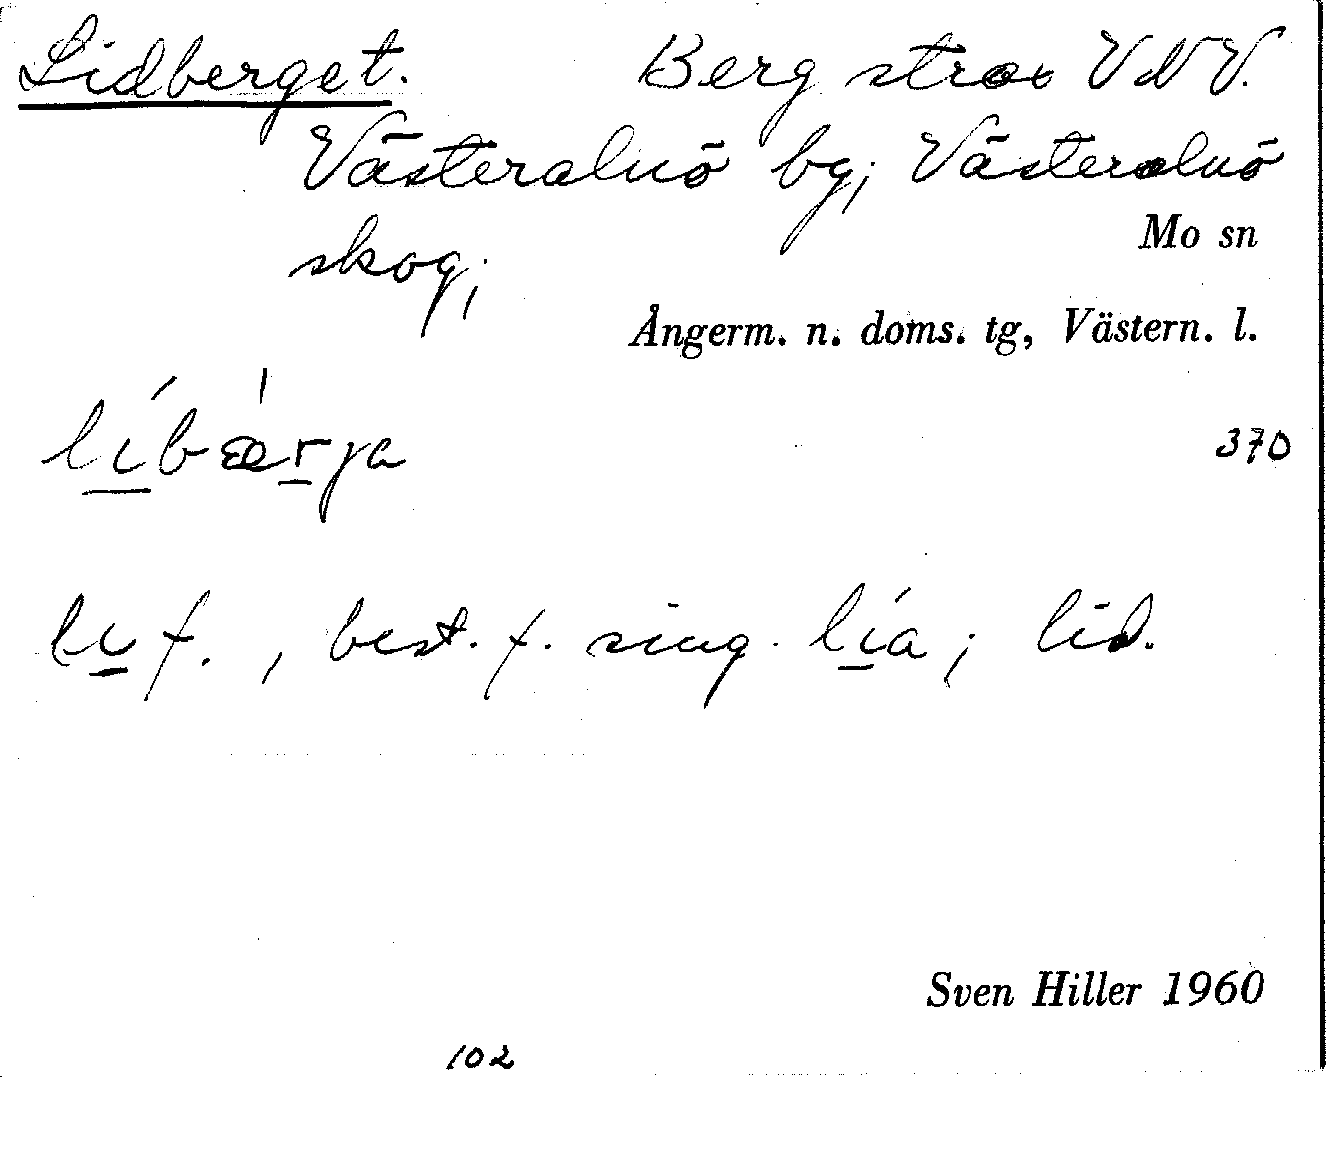 Lidberget. Berg strax VNV.
Västeralnö bg; Västeralnö
skog;
Mo sn
Ångerm. n. doms. tg, Västern. l.
líbæ̀r̲ja
370
li̲ f., best. f. sing. lí̲a; lid.
Sven Hiller 1960
102